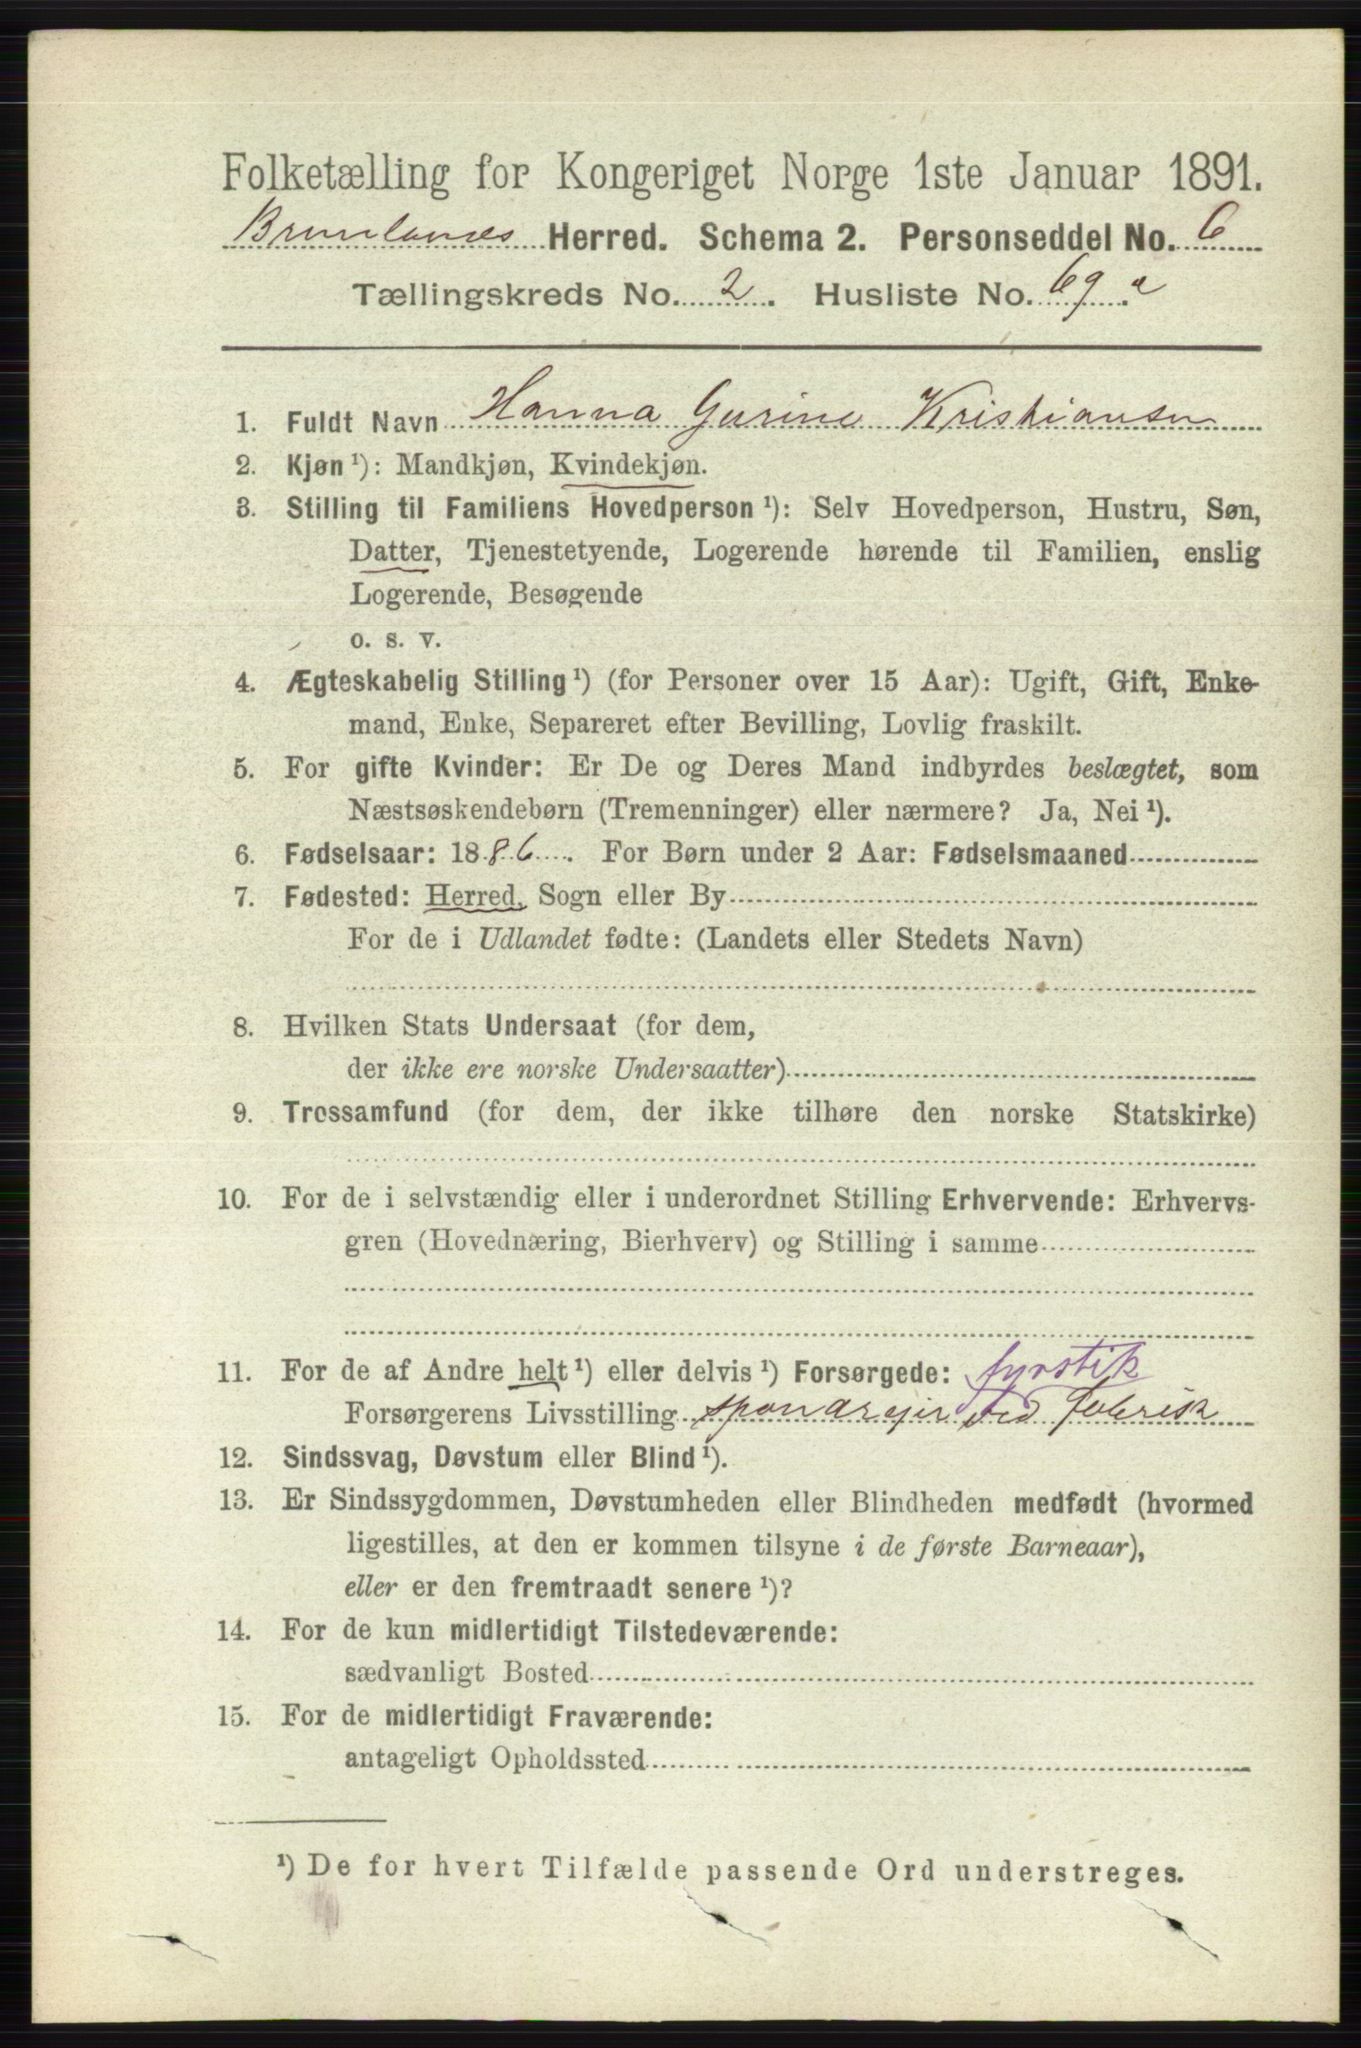 Folketælling for Kongeriget Norge 1ste Januar 1891.
Brunlanes Herred. Schema 2. Personseddel No. 6
Tællingskreds No. 2. Husliste No. 69.a
1. Fuldt Navn Hanna Gurine Kristiansen
2. Kjøn¹): Mandkjøn, Kvindekjøn.
3. Stilling til Familiens Hovedperson¹): Selv Hovedperson, Hustru, Søn,
Datter, Tjenestetyende, Logerende hørende til Familien, enslig
Logerende, Besøgende
o. s. v.
4. Ægteskabelig Stilling¹) (for Personer over 15 Aar): Ugift, Gift, Enke-
mand, Enke, Separeret efter Bevilling, Lovlig fraskilt.
5. For gifte Kvinder: Er De og Deres Mand indbyrdes beslægtet, som
Næstsøskendebørn (Tremenninger) eller nærmere? Ja, Nei¹).
6. Fødselsaar: 1886. For Børn under 2 Aar: Fødselsmaaned
7. Fødested: Herred, Sogn eller By
For de i Udlandet fødte: (Landets eller Stedets Navn)
8. Hvilken Stats Undersaat (for dem,
der ikke ere norske Undersaatter)
9. Trossamfund (for dem, der ikke tilhøre den norske Statskirke)
10. For de i selvstændig eller i underordnet Stilling Erhvervende: Erhvervs-
gren (Hovednæring, Bierhverv) og Stilling i samme
11. For de af Andre helt¹) eller delvis¹) Forsørgede: fyrstik
Forsørgerens Livsstilling ved Fabrik
12. Sindssvag, Døvstum eller Blind¹).
13. Er Sindssygdommen, Døvstumheden eller Blindheden medfødt (hvormed
ligestilles, at den er kommen tilsyne i de første Barneaar),
eller er den fremtraadt senere¹)?
14. For de kun midlertidigt Tilstedeværende:
sædvanligt Bosted
15. For de midlertidigt Fraværende:
antageligt Opholdssted
¹) De for hvert Tilfælde passende Ord understreges.